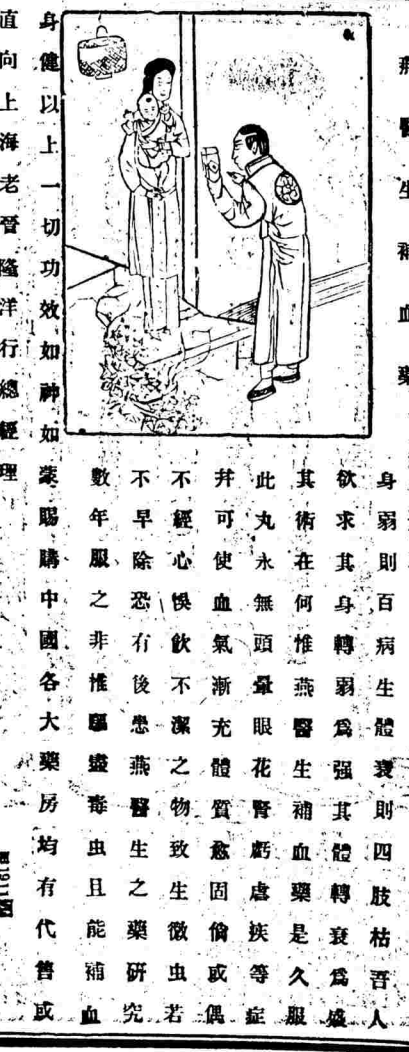 燕醫生補血藥
身弱則百病生體衰則四肢枯吾人
欲求其身轉弱爲强其體轉衰爲盛
其術在何惟燕醫生補血藥是久服
此丸永無頭暈眼花腎虧虐疾等症
幷可使血氣漸充體質愈固倘或偶
不經心悞飲不潔之物致生微虫若
不早除恐有後患燕醫生之藥研究
數年服之非惟驅盡毒虫且能補血
身健以上一切功效如神如蒙賜購中國各大藥房均有代售或
直向上海老晉隆洋行總經理